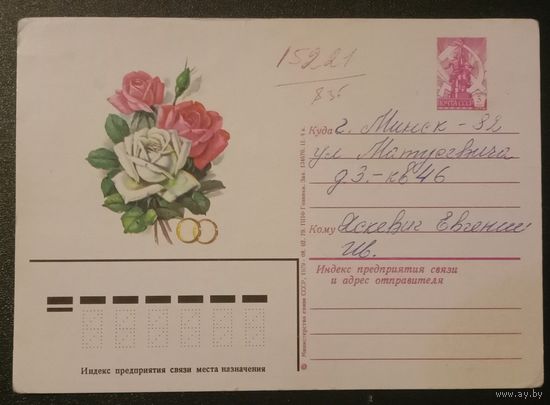 15221
835
ПОЧТА СССР
Куда г. Минск - 82
ул Матусевича
д 3.-кв 46
Кому Аскевич Евгении
Ив.
Индекс предприятия связи
и адрес отправителя
Индекс предприятия связи места назначения
© Министерство связи СССР, 1979
www.ay.by